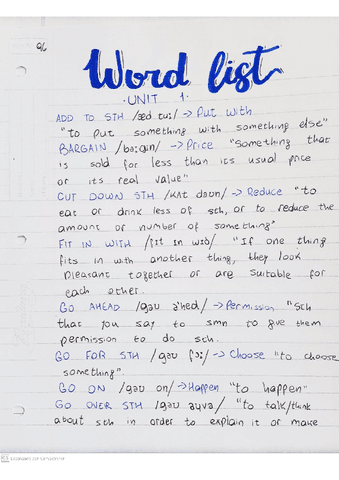 96
Word list
· UNIT 1·
ADD TO STH /æd tu:/ → Put with
"to put something with something else"
BARGAIN /ba:gɪn/ → Price "Something that
is sold for less than its usual price
or its real value"
CUT DOWN STH /kʌt daun/ → Reduce "to
eat or drink less of sth, or to reduce the
amount or number of something"
FIT IN WITH /fɪt in wɪð/ "If one thing
fits in with another thing, they look
pleasant together or are suitable for
each other.
GO AHEAD /gəu ə'hed/ → Permission "Sth
that you say to smn to give them
permission to do sth.
GO FOR STH /gəu fɔ:/ → Choose "to choose
something".
GO ON /gəu on/ → Happen "to happen"
GO OVER STH /gəu əuvə/ "to talk/think
about sth in order to explain it or make